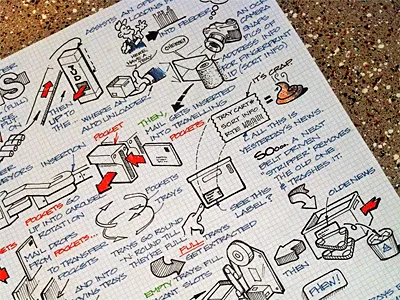 ASSISTS AN OP
LOADING
INTO FEEDER
CHERRY!
AN OCR
CAMERA
SNAPS
PICS OF
ADDRESS INFO
FOR FINGERPRINT
ID (SORT INFO)
(FULL)
ARE
THEN
UP TO
THE
WHERE AN
ALTO UNLOADER
THEN,
MAIL
INTO
GETS INSERTED
TRAVELLING
POCKETS
POCKET
INSERTION
POCKETS GO
UP INTO CAROUSEL
ROTATION
IT'S CRAP!
TRAY CART #
SORT INFO
RTE
& ALL THIS IS
YESTERDAY'S NEWS.
SO... A NEAT
"STRIPPER" REMOVES
THE OLD ONE
& TRASHES IT.
MAIL DROPS
FROM POCKETS...
TO TRANSFER
POCKETS
AND INTO
MOVING TRAYS
TRAYS
TRAYS GO ROUND
'N ROUND TILL
THEY'RE FULL.
FULL TRAYS
GET EXTRACTED
EMPTY TRAYS FILL
VACANT SLOTS
SEE THIS
LABEL?
OLD NEWS
THEN
PHEW!